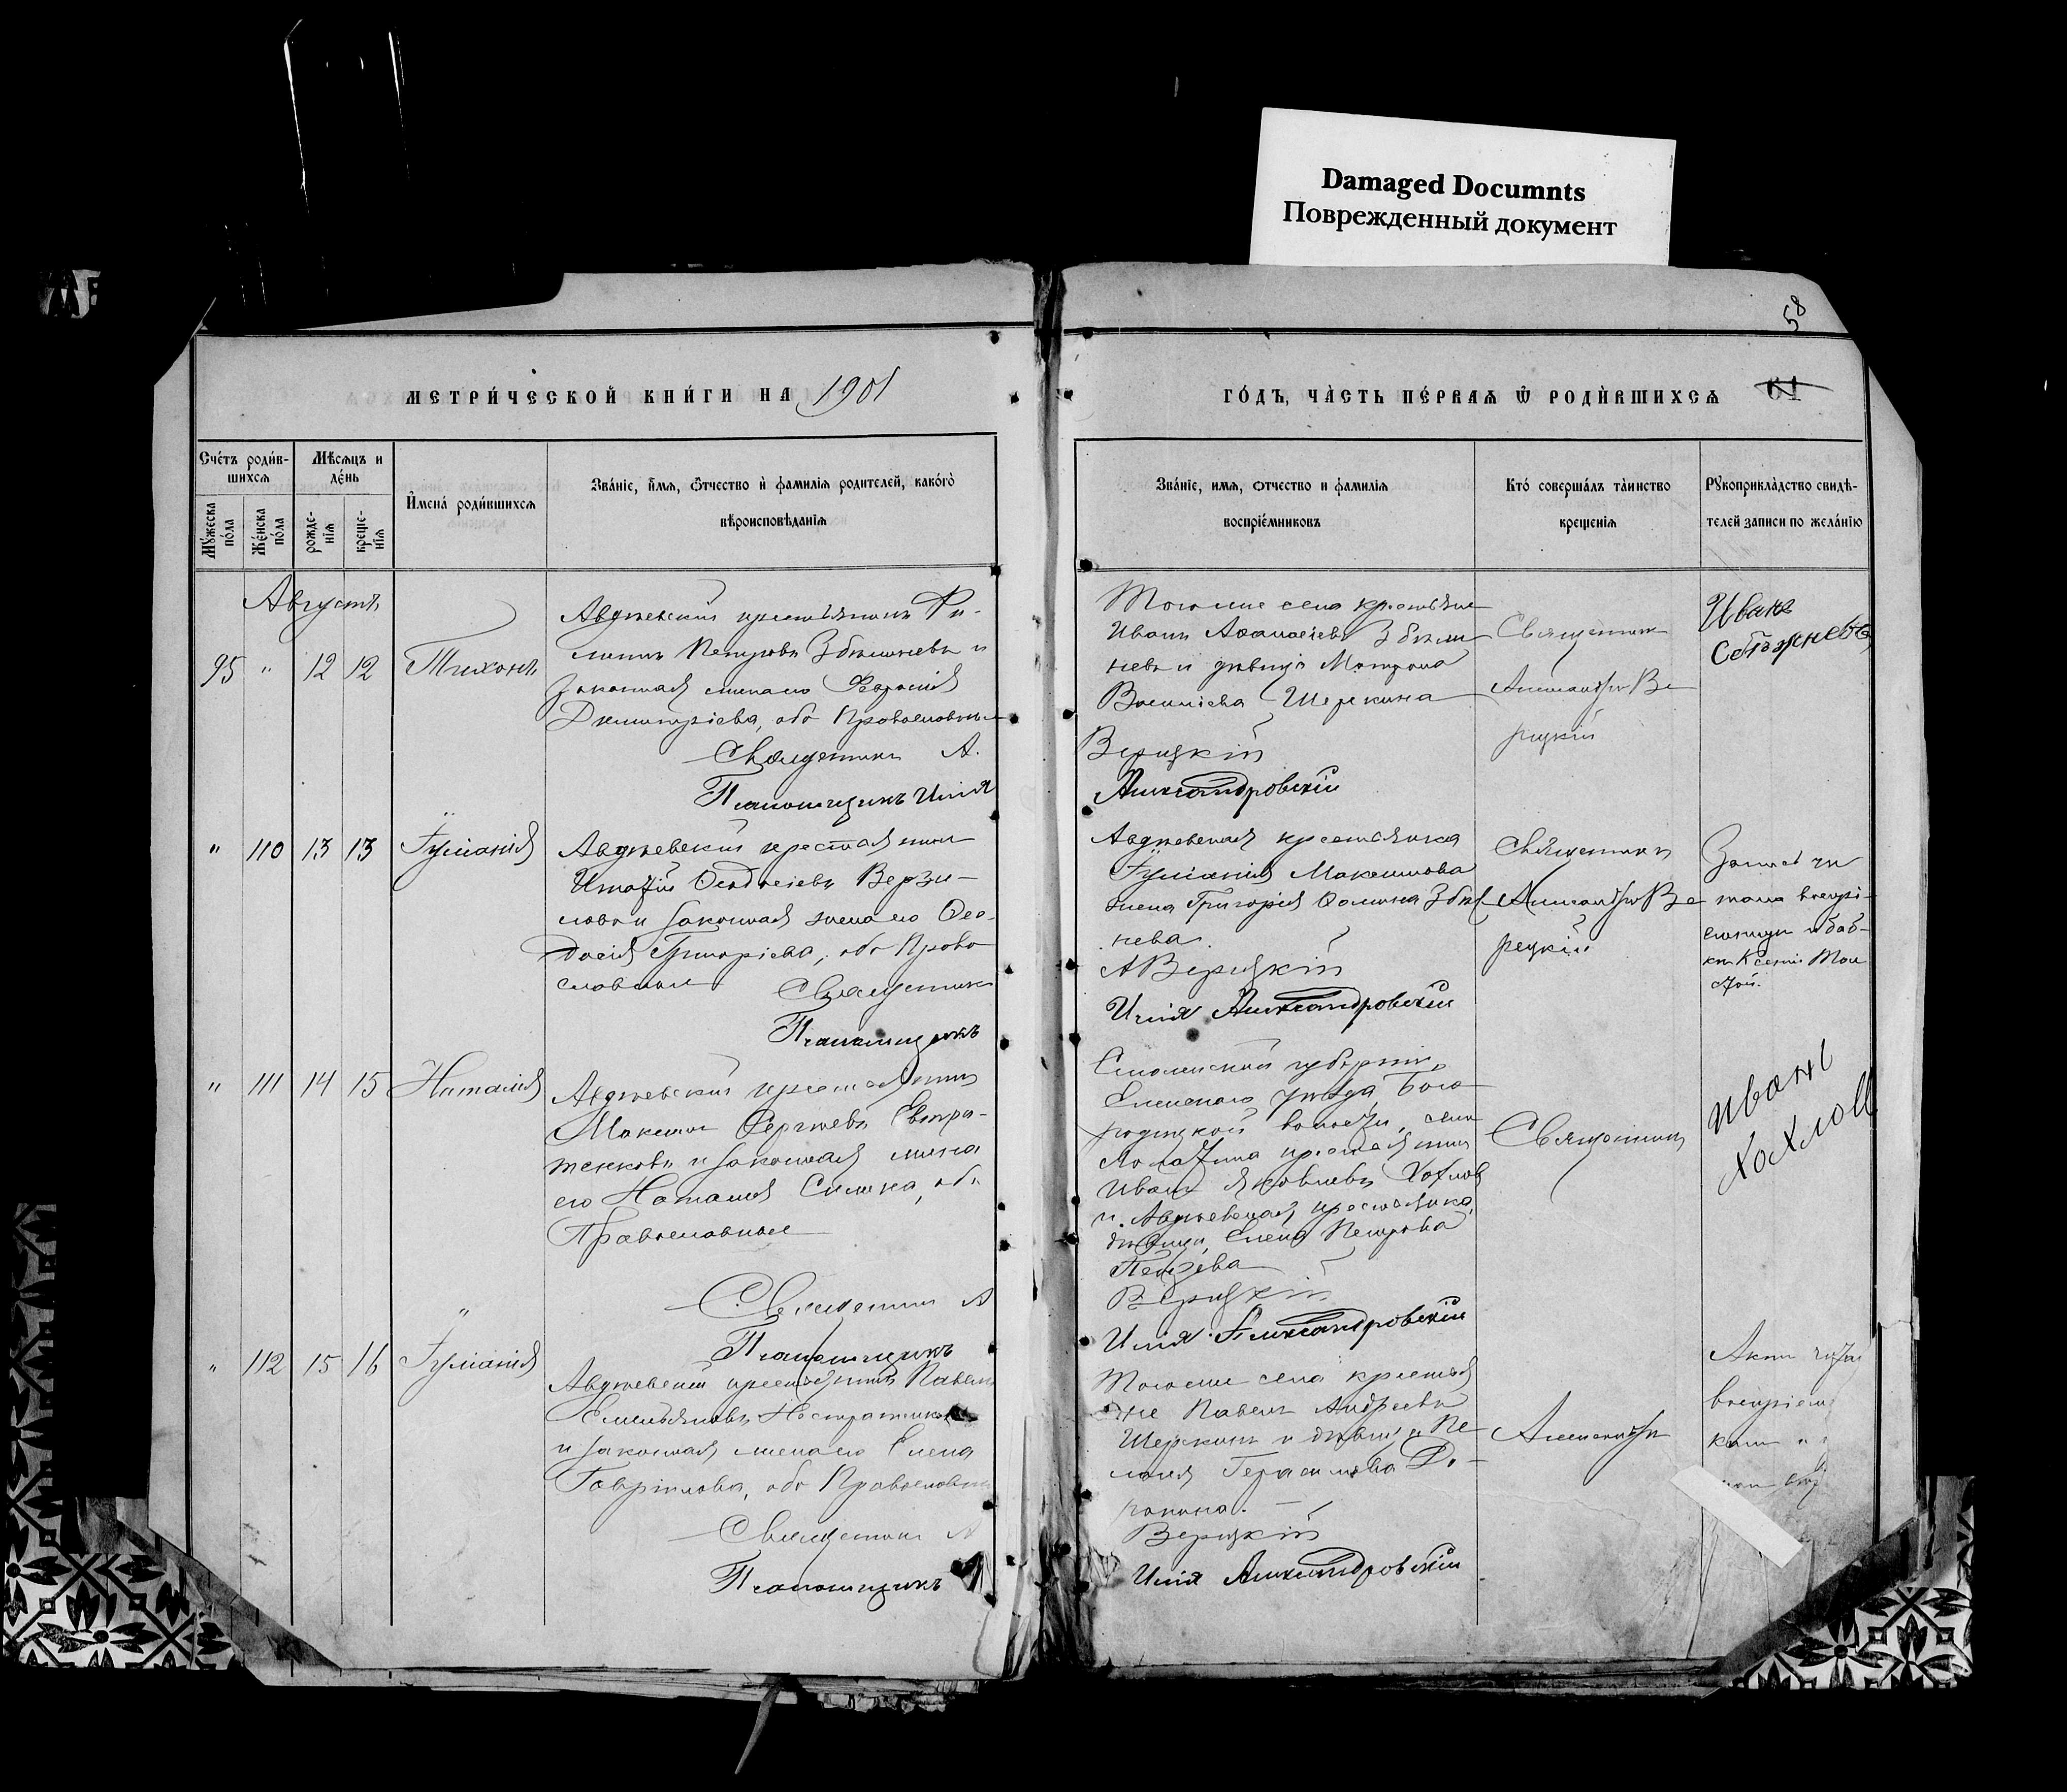 Damaged Documnts
Поврежденный документ
58
МЕТРИ́ЧЕСКОЙ КНИ́ГИ НА 1901
ГО́ДЪ, ЧА̀СТЬ ПЕ́РВАѦ Ѡ҆ РОДИ́ВШИХСѦ 61
Сче́тъ роди́в-
шихсѧ
Мѣ́сѧцъ и
де́нь
Мꙋ́жеска по́ла
Же́нска по́ла
рожде-
нїѧ
креще-
нїѧ
И҆мена̀ роди́вшихсѧ
Зва́нїе, и҆́мѧ, ѻ҆́тчество и҆ фами́лїѧ родителей, како́гѡ
вѣроисповѣ́данїѧ
Зва́нїе, имѧ, ѻтчество и фамилїѧ
воспрїе́мниковъ
Кто́ соверша́лъ та̀инство
креще́нїѧ
Рꙋкоприкла̀дство свидѣ-
телей записи по жела́нїю
Августъ
95 " 12 12 Тихонъ
Авдѣевскій крестьянинъ Фи-
липпъ Петровъ Збѣжневъ и
законная жена его Февронія
Димитріева, оба Православные
Священникъ А.
Псаломщикъ Илія
Того же села крестьяне
Иванъ Аѳанасіевъ Збѣж
невъ и дѣвица Матрона
Василіева Шерекина
Верецкій
Александровскій
Священник
Александръ Ве
рецкій
Иванъ
Сбѣжневъ
" 110 13 13 Іуліанія
Авдѣевскій крестьянин
Игнатій Ѳеодосіевъ Верзи-
ловъ и законная жена его Ѳео-
досія Григоріева, оба Право
славные
Священник
Псаломщикъ
Авдѣевская крестьянка
Іуліанія Максимова
жена Григорія Ѳомина Збѣж
нева.
А Верецкій
Илія Александровскій
Священникъ
Александръ Ве
рецкій
" 111 14 15 Наталія
Авдѣевскій крестьянинъ
Максимъ Сергѣевъ
и законная жена
его Наталія оба
Православные
Священникъ А
Псаломщикъ
Смоленской губерніи,
Ельнского уѣзда, Бого
родицкой волости, села
крестьянин
Иванъ Яковлевъ Хохлов
и Авдѣевская крестьянка,
дѣвица, Елена Петрова
Верецкій
Илія Александровскій
Священникъ
Иванъ
Хохловъ
" 112 15 16 Іуліанія
Авдѣевскій крестьянинъ Павелъ
Емельяновъ
и законная жена его Елена
Гавріилова, оба Православные
Священникъ А
Псаломщикъ
Того же села крестья
не Павелъ Андреевъ
Шерекинъ и дѣвица Пе
лагія Герасимова До-
ронина.
Верецкій
Илія Александровскій
Александръ